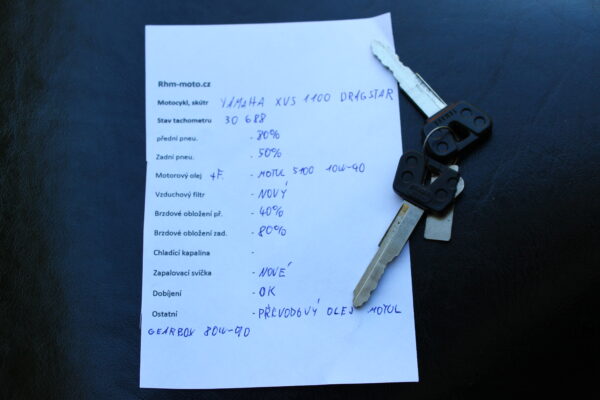 Rhm-moto.cz
Motocykl, skútr YAMAHA XVS 1100 DRAGSTAR
Stav tachometru 30 688
přední pneu. - 80%
Zadní pneu. - 50%
Motorový olej 4F. - MOTUL 5100 10W-40
Vzduchový filtr - NOVÝ
Brzdové obložení př. - 40%
Brzdové obložení zad. - 80%
Chladící kapalina -
Zapalovací svíčka - NOVÉ
Dobíjení - OK
Ostatní - PŘEVODOVÝ OLEJ MOTUL
GEARBOX 80W-90